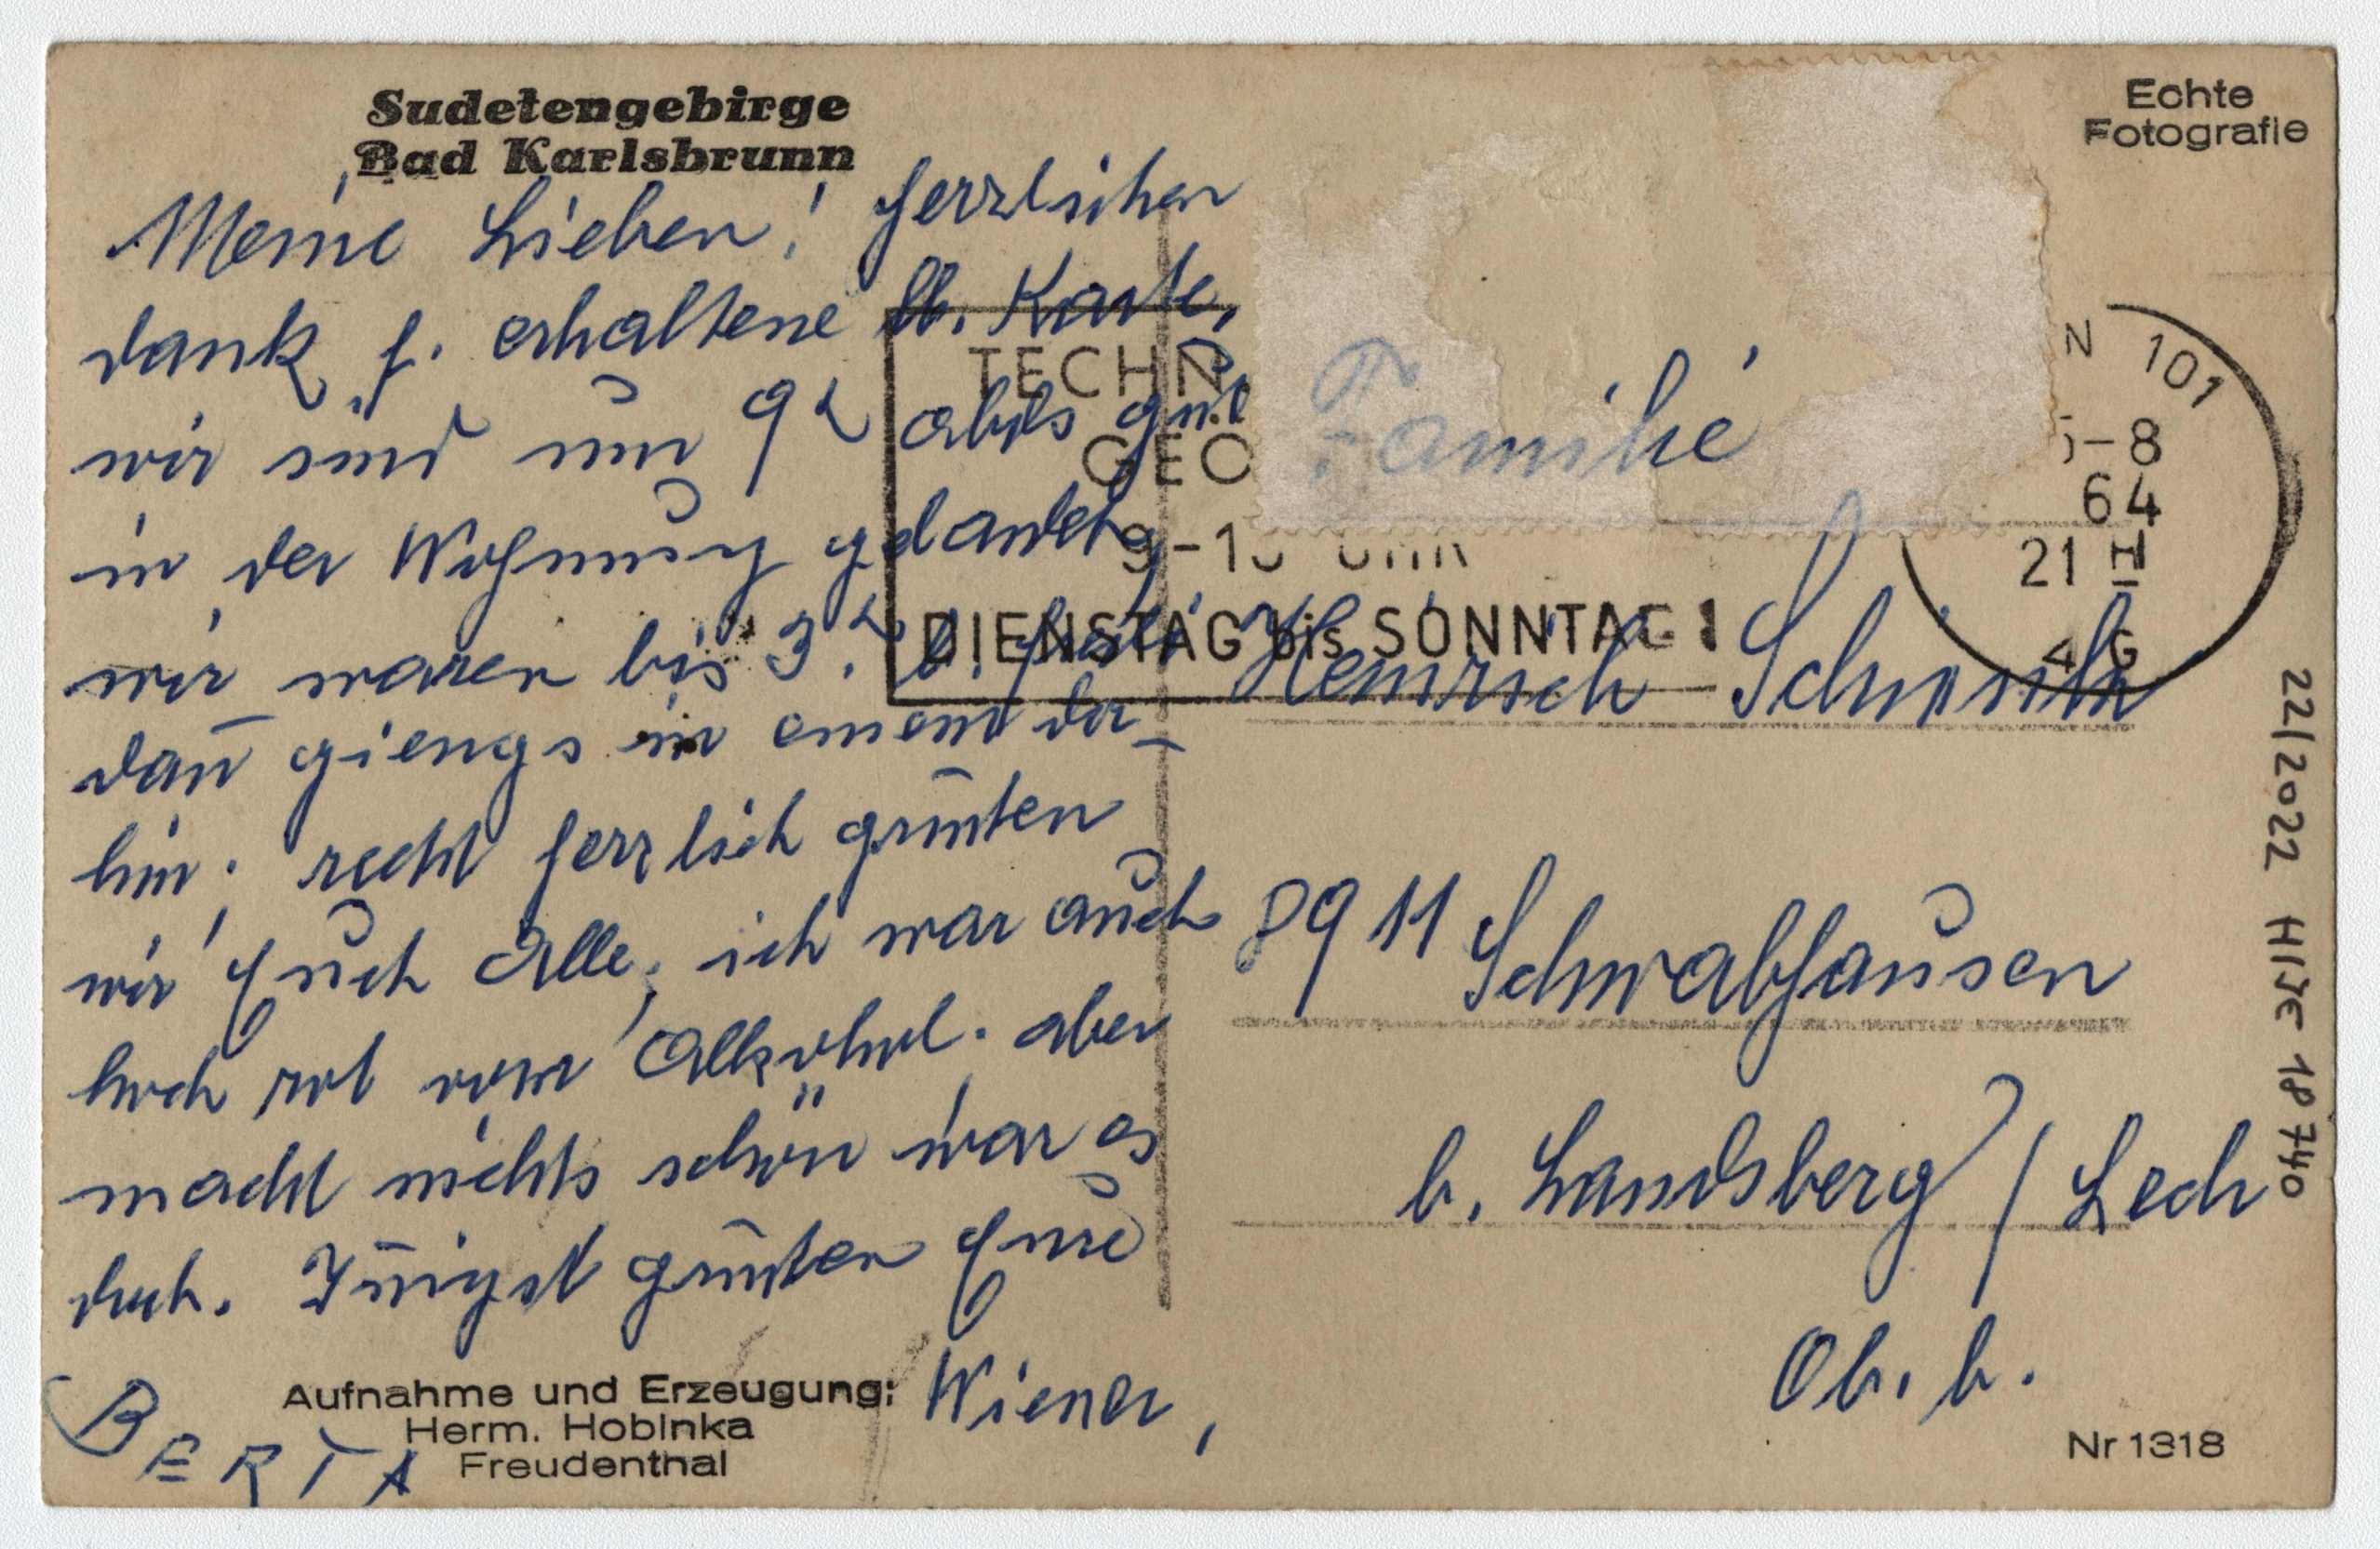 Sudetengebirge
Bad Karlsbrunn
Echte
Fotografie
Meine Lieben! Herzlichen
dank f. erhaltene lb. Karte,
wir sind um 9h abds gut
in der Wohnung gelandet,
wir waren bis 3h b. 
dan̄ giengs in einem da-
hin; recht herzlich grüßten
wir Euch Alle, ich war auch
hoch rot vom Alkohol. aber
macht nichts schön war es
doch. In̄igst grüßten Eure
Wiener,
BERTA
Aufnahme und Erzeugung:
Herm. Hobinka
Freudenthal
TECHN
GEO
9-1
DIENSTAG bis SONNTAG!
N 101
5-8
64
21 H
4 G
Familie
Heinrich Schmidt
8911 Schwabhausen
b. Landsberg / Lech
Ob. b.
Nr 1318
22/2022 HIJE 18740